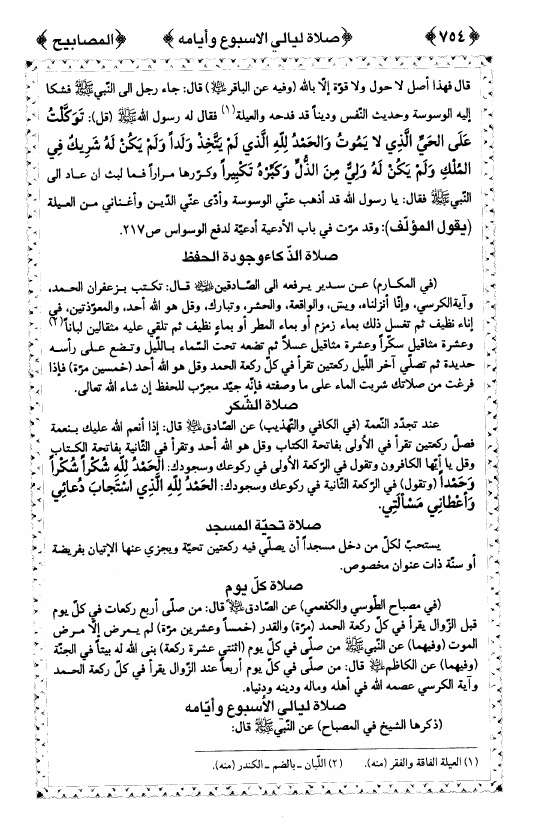 ﴿٧٥٤﴾ ﴿صلاة ليالي الاسبوع وأيامه﴾ ﴿المصابيح﴾
قال فهذا أصل لا حول ولا قوّة إلّا بالله (وفيه عن الباقر) قال: جاء رجل الى النّبيﷺ فشكا
إليه الوسوسة وحديث النّفس وديناً قد فدحه والعيلة(١) فقال له رسول اللهﷺ (قل): تَوَكَّلْتُ
عَلَى الحَيِّ الَّذِي لا يَمُوتُ وَالحَمْدُ لِلَّهِ الَّذي لَمْ يَتَّخِذْ وَلَداً وَلَمْ يَكُنْ لَهُ شَرِيكٌ فِي
المُلْكِ وَلَمْ يَكُنْ لَهُ وَلِيٌّ مِنَ الذُّلِّ وَكَبِّرْهُ تَكْبِيراً وكرّرها مراراً فما لبث ان عاد الى
النّبيﷺ فقال: يا رسول الله قد أذهب عنّي الوسوسة وأدّى عنّي الدّين وأغناني من العيلة
(يقول المؤلّف): وقد مرّت في باب الأدعية أدعيّة لدفع الوسواس ص٢١٧.
صلاة الذّكاء وجودة الحفظ
(في المكارم) عن سدير يرفعه الى الصّادقين قال: تكتب بزعفران الحمد،
وآيةالكرسي، وإنّا أنزلناه، ويسۤ، والواقعة، والحشر، وتبارك، وقل هو الله أحد، والمعوّذتين، في
إناء نظيف ثم تغسل ذلك بماء زمزم أو بماء المطر أو بماءٍ نظيف ثم تلقي عليه مثقالين لباناً(٢)
وعشرة مثاقيل سكّراً وعشرة مثاقيل عسلاً ثم تضعه تحت السّماء باللّيل وتضع على رأسه
حديدة ثم تصلّي آخر اللّيل ركعتين تقرأ في كلّ ركعة الحمد وقل هو الله أحد (خمسين مرّة) فإذا
فرغت من صلاتك شربت الماء على ما وصفته فإنّه جيّد مجرّب للحفظ إن شاء الله تعالى.
صلاة الشّكر
عند تجدّد النّعمة (في الكافي والتّهذيب) عن الصّادق قال: إذا أنعم الله عليك بنعمة
فصلّ ركعتين تقرأ في الأولى بفاتحة الكتاب وقل هو الله أحد وتقرأ في الثّانية بفاتحة الكتاب
وقل يا أيّها الكافرون وتقول في الرّكعة الأولى في ركوعك وسجودك: الحَمْدُ لِلَّهِ شُكْراً شُكْراً
وَحَمْداً (وتقول) في الرّكعة الثّانية في ركوعك وسجودك: الحَمْدُ لِلَّهِ الَّذِي اسْتَجابَ دُعائِي
وَأَعْطانِي مَسْأَلَتِي.
صلاة تحيّة المسجد
يستحبّ لكلّ من دخل مسجداً أن يصلّي فيه ركعتين تحيّة ويجزي عنها الإتيان بفريضة
أو سنّة ذات عنوان مخصوص.
صلاة كلّ يوم
(في مصباح الطّوسي والكفعمي) عن الصّادق قال: من صلّى أربع ركعات في كلّ يوم
قبل الزّوال يقرأ في كلّ ركعة الحمد (مرّة) والقدر (خمساً وعشرين مرّة) لم يمرض إلّا مرض
الموت (وفيهما) عن النّبيﷺ من صلّى في كلّ يوم (اثنتي عشرة ركعة) بنى الله له بيتاً في الجنّة
(وفيهما) عن الكاظم قال: من صلّى في كلّ يوم أربعاً عند الزّوال يقرأ في كلّ ركعة الحمد
وآية الكرسي عصمه الله في أهله وماله ودينه ودنياه.
صلاة ليالي الأسبوع وأيّامه
(ذكرها الشيخ في المصباح) عن النّبيﷺ قال:
(١) العيلة الفاقة والفقر (منه). (٢) اللّبان ـ بالضم ـ الكندر (منه).